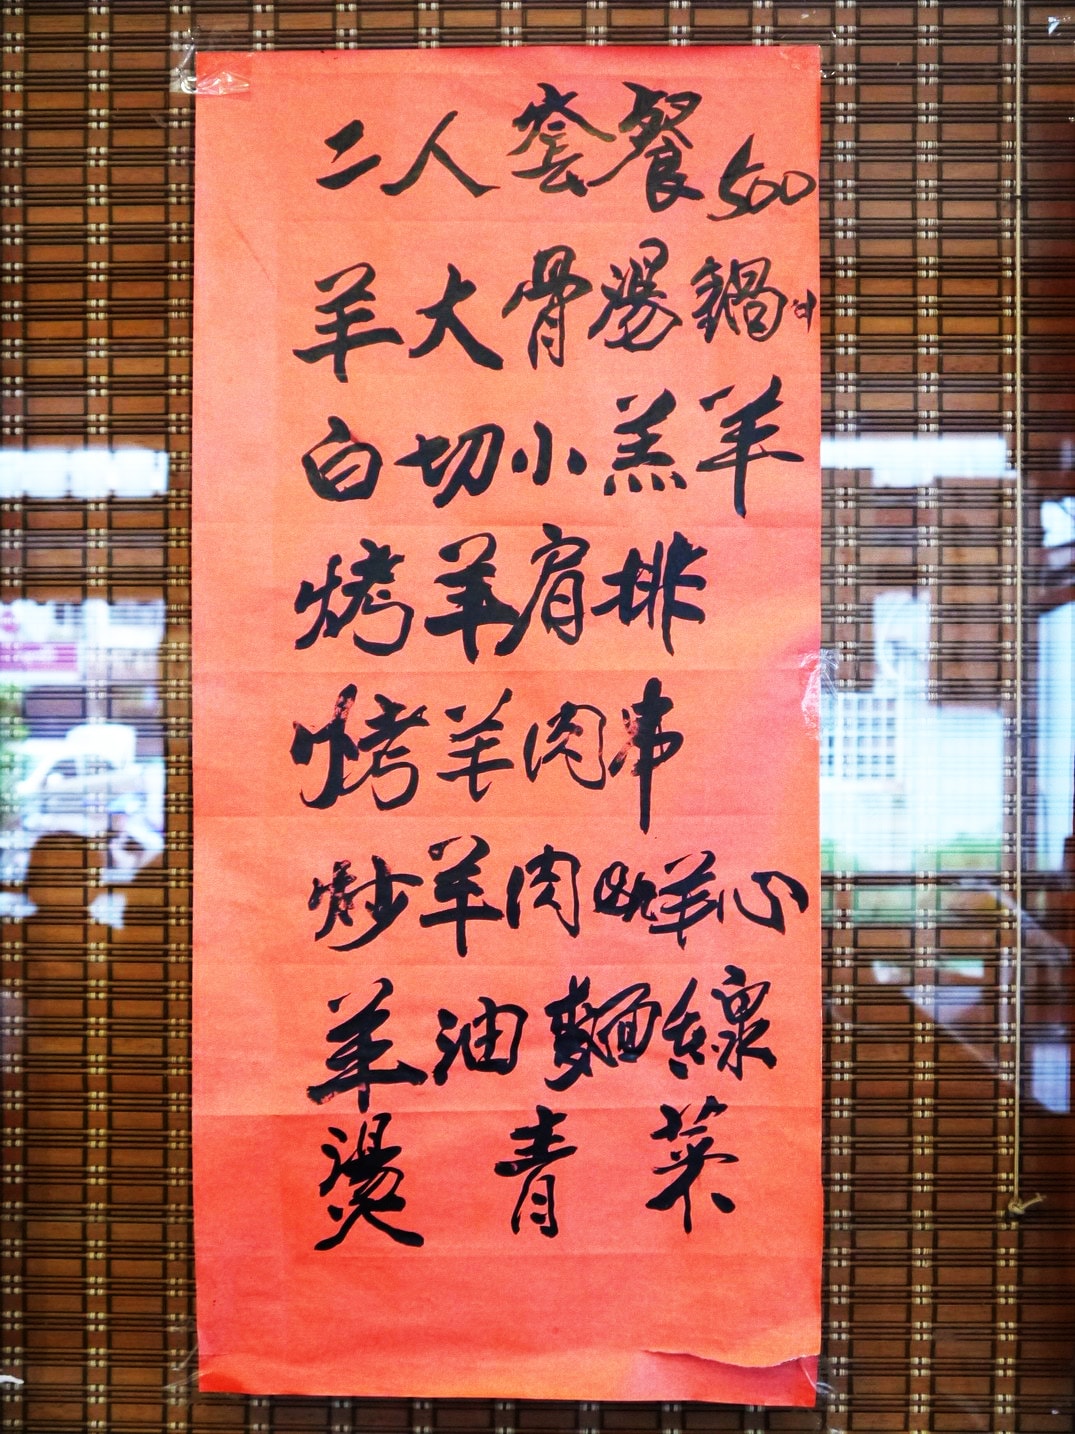 二人套餐 500
羊大骨湯鍋 中
白切小羔羊
烤羊肩排
烤羊肉串
炒羊肉 或羊心
羊油麵線
燙青菜